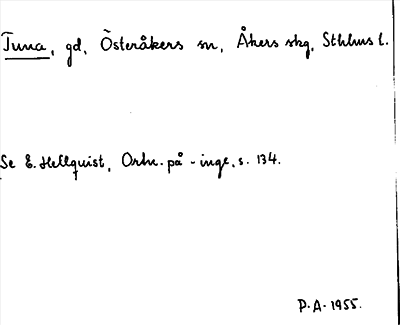 Tuna, gd, Österåkers sn, Åkers skg, Sthlms l.
Se E. Hellquist, Ortn. på -inge, s. 134.
P.A. 1955.